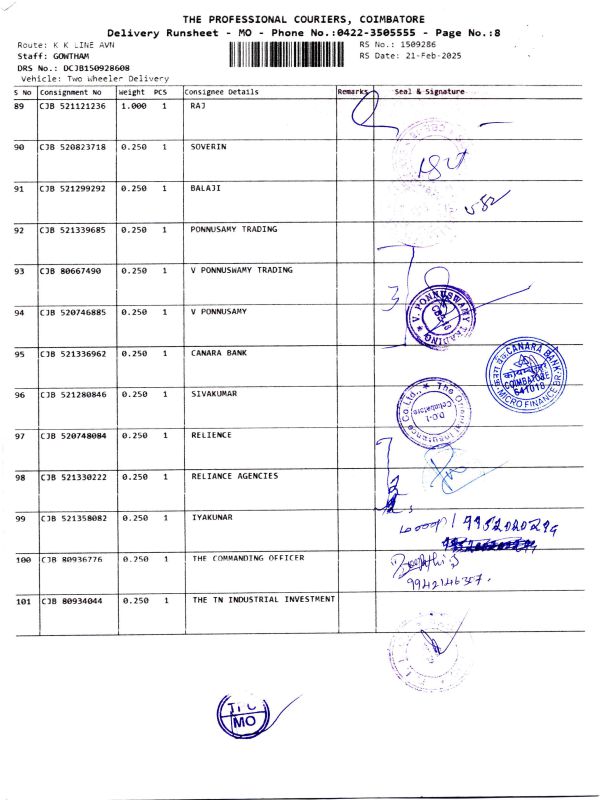 THE PROFESSIONAL COURIERS, COIMBATORE
Delivery Runsheet - MO - Phone No.:0422-3505555 - Page No.:8
Route: K K LINE AVN RS No.: 1509286
Staff: GOWTHAM RS Date: 21-Feb-2025
DRS No.: DCJB150928608
Vehicle: Two Wheeler Delivery
S No Consignment No Weight PCS Consignee Details Remarks Seal & Signature
89 CJB 521121236 1.000 1 RAJ
90 CJB 520823718 0.250 1 SOVERIN
91 CJB 521299292 0.250 1 BALAJI
582
92 CJB 521339685 0.250 1 PONNUSAMY TRADING
93 CJB 80667490 0.250 1 V PONNUSWAMY TRADING
3
94 CJB 520746885 0.250 1 V PONNUSAMY
V. PONNUSWAMY TRADING
95 CJB 521336962 0.250 1 CANARA BANK
CANARA BANK
COIMBATORE
641018
MICRO FINANCE BR
96 CJB 521280846 0.250 1 SIVAKUMAR
The Oriental Insurance Co Ltd.,
D.O-1
Coimbatore
97 CJB 520748084 0.250 1 RELIENCE
98 CJB 521330222 0.250 1 RELIANCE AGENCIES
99 CJB 521358082 0.250 1 IYAKUNAR
100 CJB 80936776 0.250 1 THE COMMANDING OFFICER
9942146357.
101 CJB 80934044 0.250 1 THE TN INDUSTRIAL INVESTMENT
MO